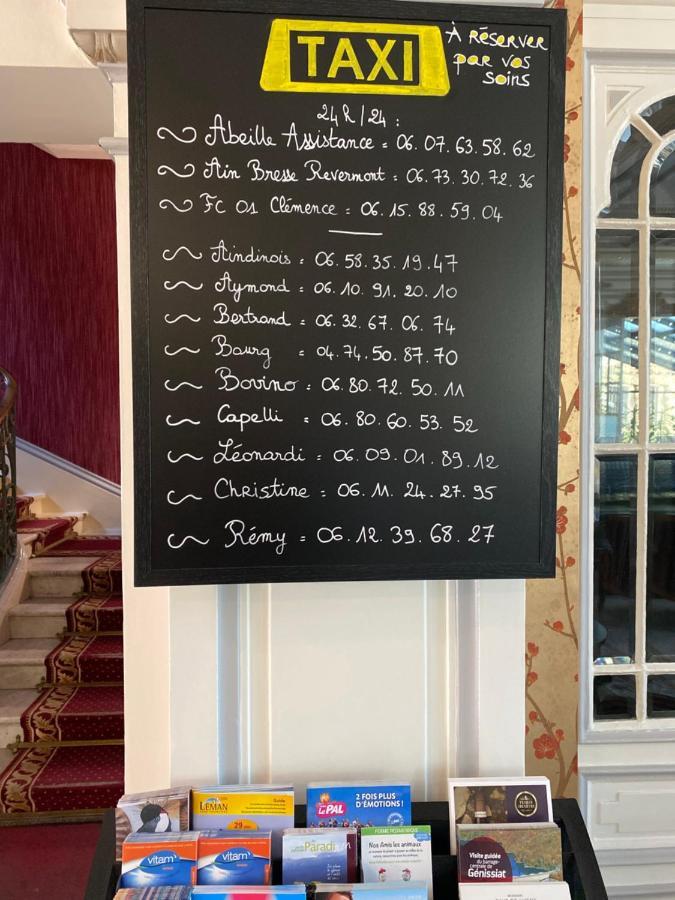 TAXI
À RÉSERVER
par vos
soins
24R/24 :
Abeille Assistance = 06.07.63.58.62
Ain Bresse Revermont : 06.73.30.72.36
FC 01 Clémence = 06.15.88.59.04
Aindinois = 06.58.35.19.47
Aymond = 06.10.91.20.10
Bertrand = 06.32.67.06.74
Bourg = 04.74.50.87.70
Bovino = 06.80.72.50.11
Capelli = 06.80.60.53.52
Léonardi = 06.09.01.89.12
Christine = 06.11.24.27.95
Rémy = 06.12.39.68.27
Guide
LÉMAN
29
Le PAL
2 FOIS PLUS
D'ÉMOTIONS !
vitam'
vitam'
Paradi
Nos Amis les animaux
Visite guidée
du barrage-
centrale de
Génissiat